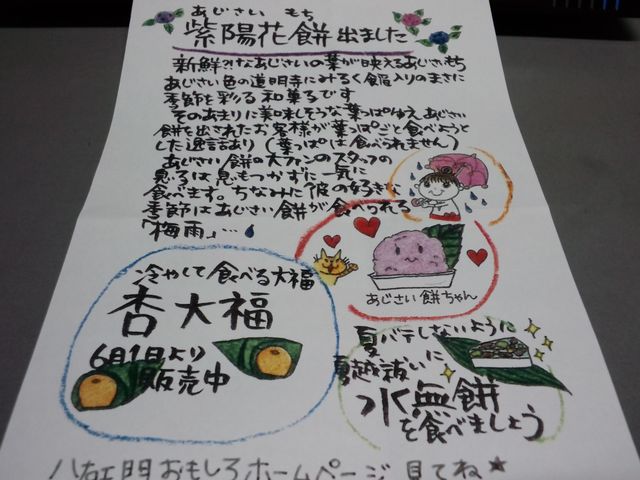 あじさい もち
紫陽花餅出ました
新鮮?!なあじさいの葉が映えるあじさいもち
あじさい色の道明寺にみるく餡入りのまさに
季節を彩る和菓子です
そのあまりに美味しそうな葉っぱゆえ、あじさい
餅を出されたお客様が葉っぱごと食べようと
した逸話あり(葉っぱは食べられません)
あじさい餅の大ファンのスタッフの
見る目もつかずに一気に
食べます。ちなみに彼の好きな
季節はあじさい餅が食べられる
「梅雨」…
あじさい餅ちゃん
冷やして食べる大福
杏大福
6月1日より
販売中
夏バテしないように
夏越祓いに
水無餅
を食べましょう
八右ェ門おもしろホームページ見てね★